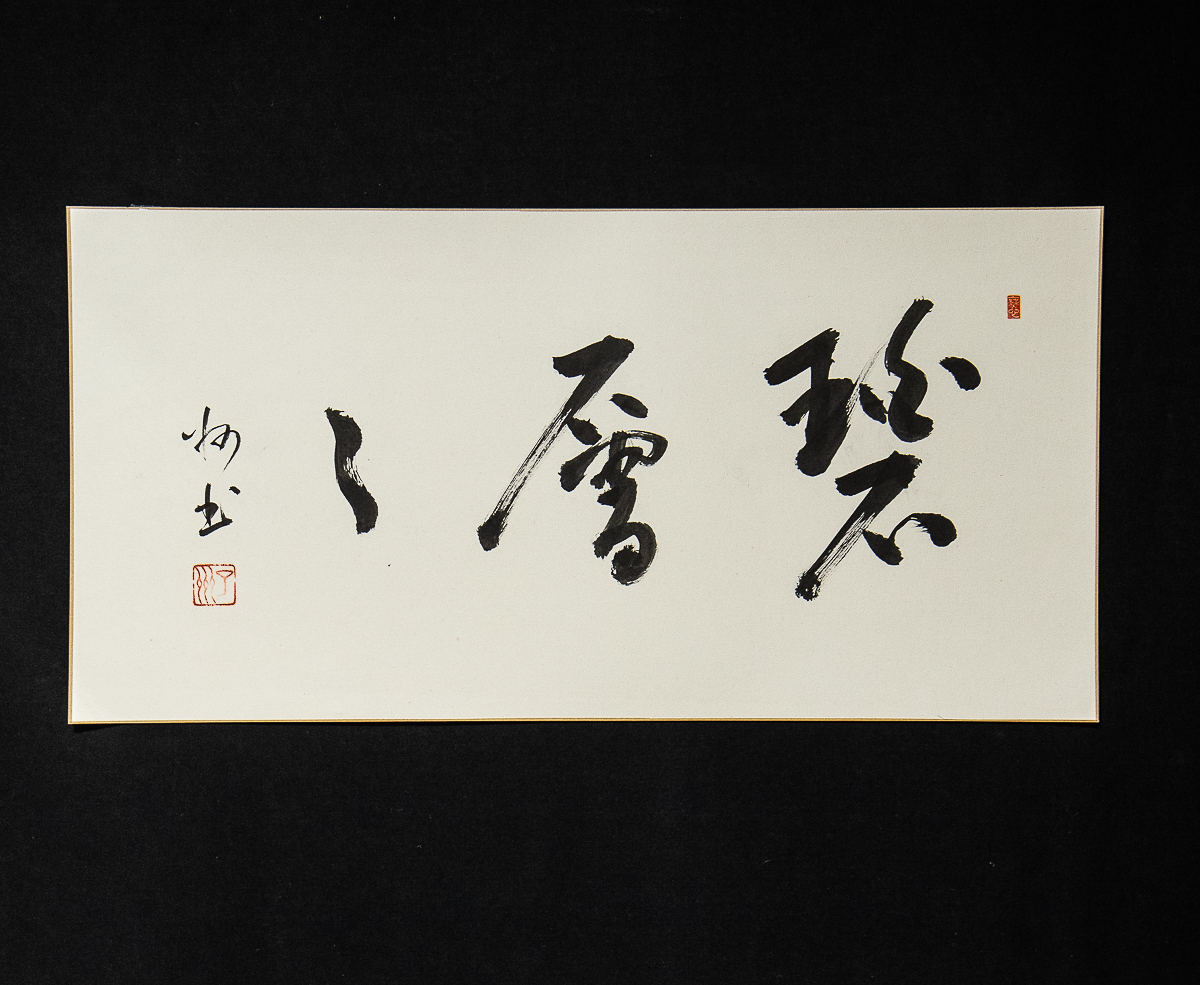 碧層々
州書